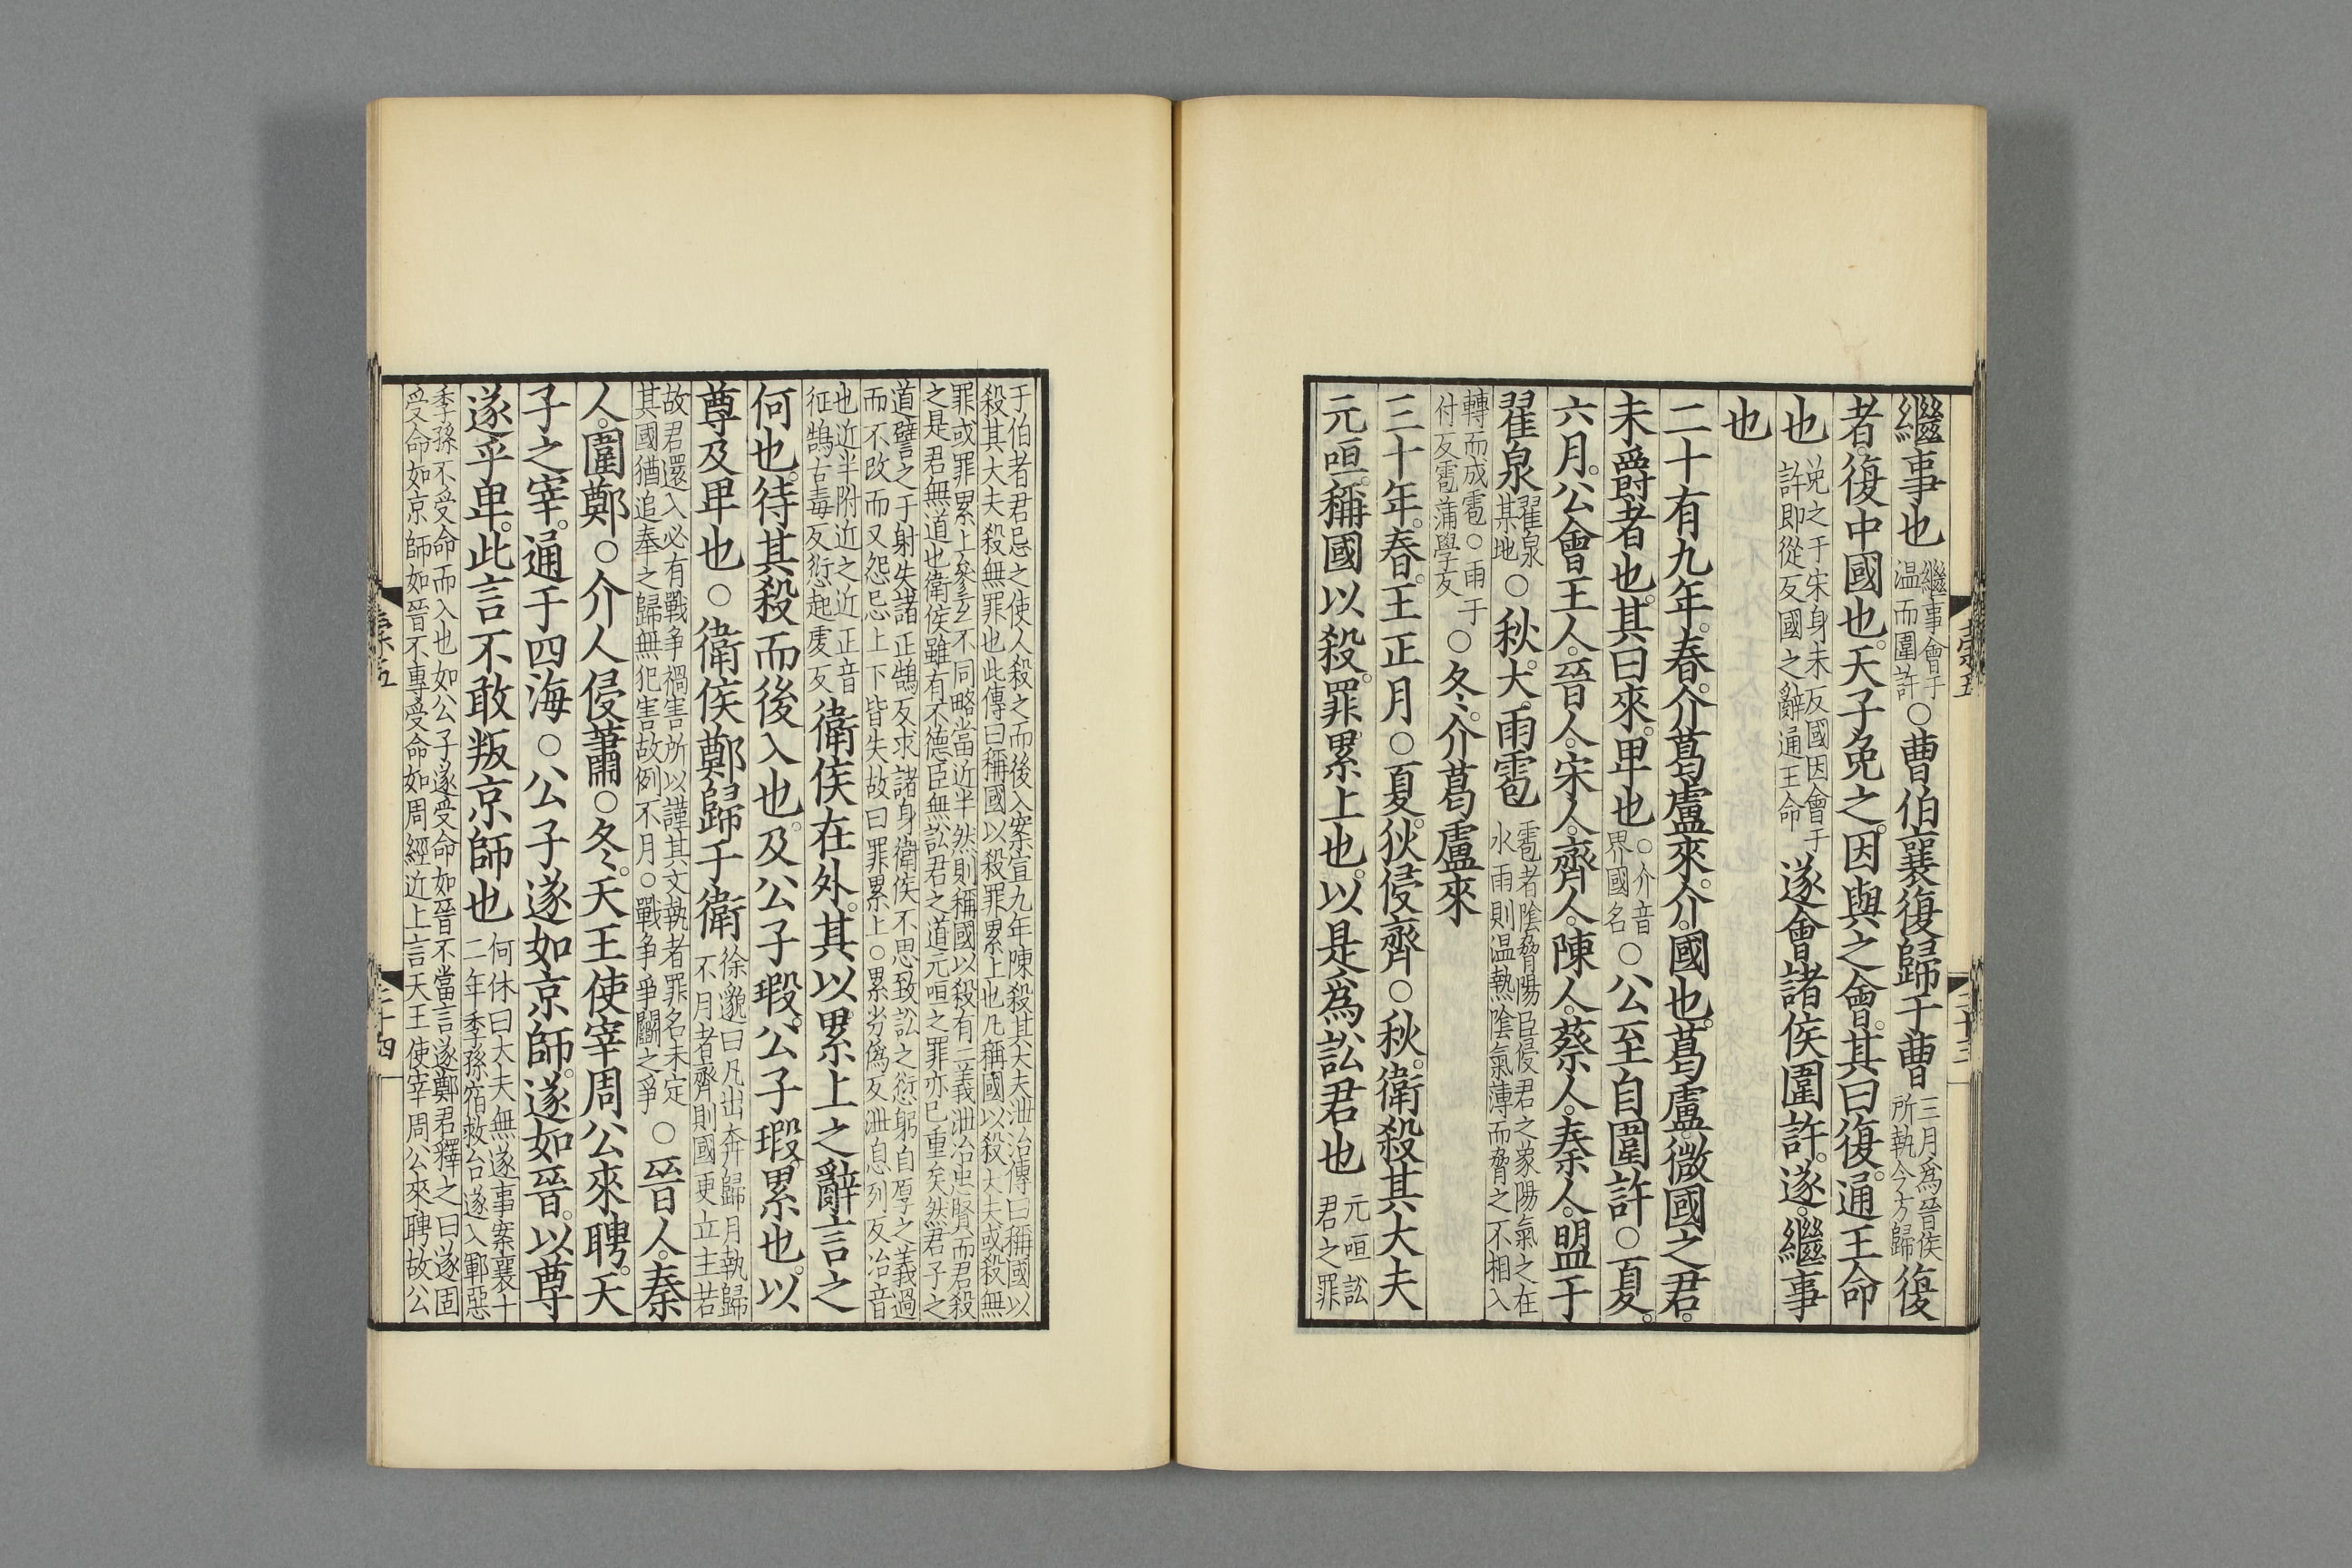 繼事也繼事會于温而圍許○曹伯襄復歸于曹三月爲晉侯所執今方歸復
者。復中國也。天子免之。因與之會。其曰復。通王命
也免之于宋身未反國因會于許即從反國之辭通王命遂會諸侯圍許。遂。繼事
也
二十有九年。春。介葛盧來。介。國也。葛盧。微國之君。
未爵者也。其曰來。卑也○介音界國名○公至自圍許○夏。
六月。公會王人。晉人。宋人。齊人。陳人。蔡人。秦人。盟于
翟泉翟泉某地○秋。大雨雹雹者陰脅陽臣侵君之象陽氣之在水雨則温熱陰氣薄而脅之不相入
轉而成雹○雨于付反雹蒲學反○冬。介葛盧來
三十年。春。王正月○夏。狄侵齊○秋。衛殺其大夫
元咺。稱國以殺。罪累上也。以是爲訟君也元咺訟君之罪
于伯者君忌之使人殺之而後入案宣九年陳殺其大夫泄冶傳曰稱國以殺其大夫殺無罪也此傳曰稱國以殺罪累上也凡稱國以殺大夫或殺無
罪或罪累上參互不同略當近半然則稱國以殺有二義泄冶忠賢而君殺之是君無道也衛侯雖有不德臣無訟君之道元咺之罪亦已重矣然君子之
道譬之于射失諸正鵠反求諸身衛侯不思致訟之愆躬自厚之義過而不改而又怨忌上下皆失故曰罪累上○累劣僞反泄息列反冶音
也近半附近之近正音征鵠古毒反愆起虔反衛侯在外。其以累上之辭言之
何也。待其殺而後入也。及公子瑕。公子瑕。累也。以
尊及卑也○衛侯鄭歸于衛徐邈曰凡出奔歸月執歸不月者齊則國更立主若
故君還入必有戰爭禍害所以謹其文執者罪名未定其國猶追奉之歸無犯害故例不月○戰爭爭鬭之爭○晉人。秦
人。圍鄭○介人侵蕭○冬。天王使宰周公來聘。天
子之宰。通于四海○公子遂如京師。遂如晉。以尊
遂乎卑。此言不敢叛京師也何休曰大夫無遂事案襄十二年季孫宿救台遂入鄆惡
季孫不受命而入也如公子遂受命如晉不當言遂鄭君釋之曰遂固受命如京師如晉不專受命如周經近上言天王使宰周公來聘故公